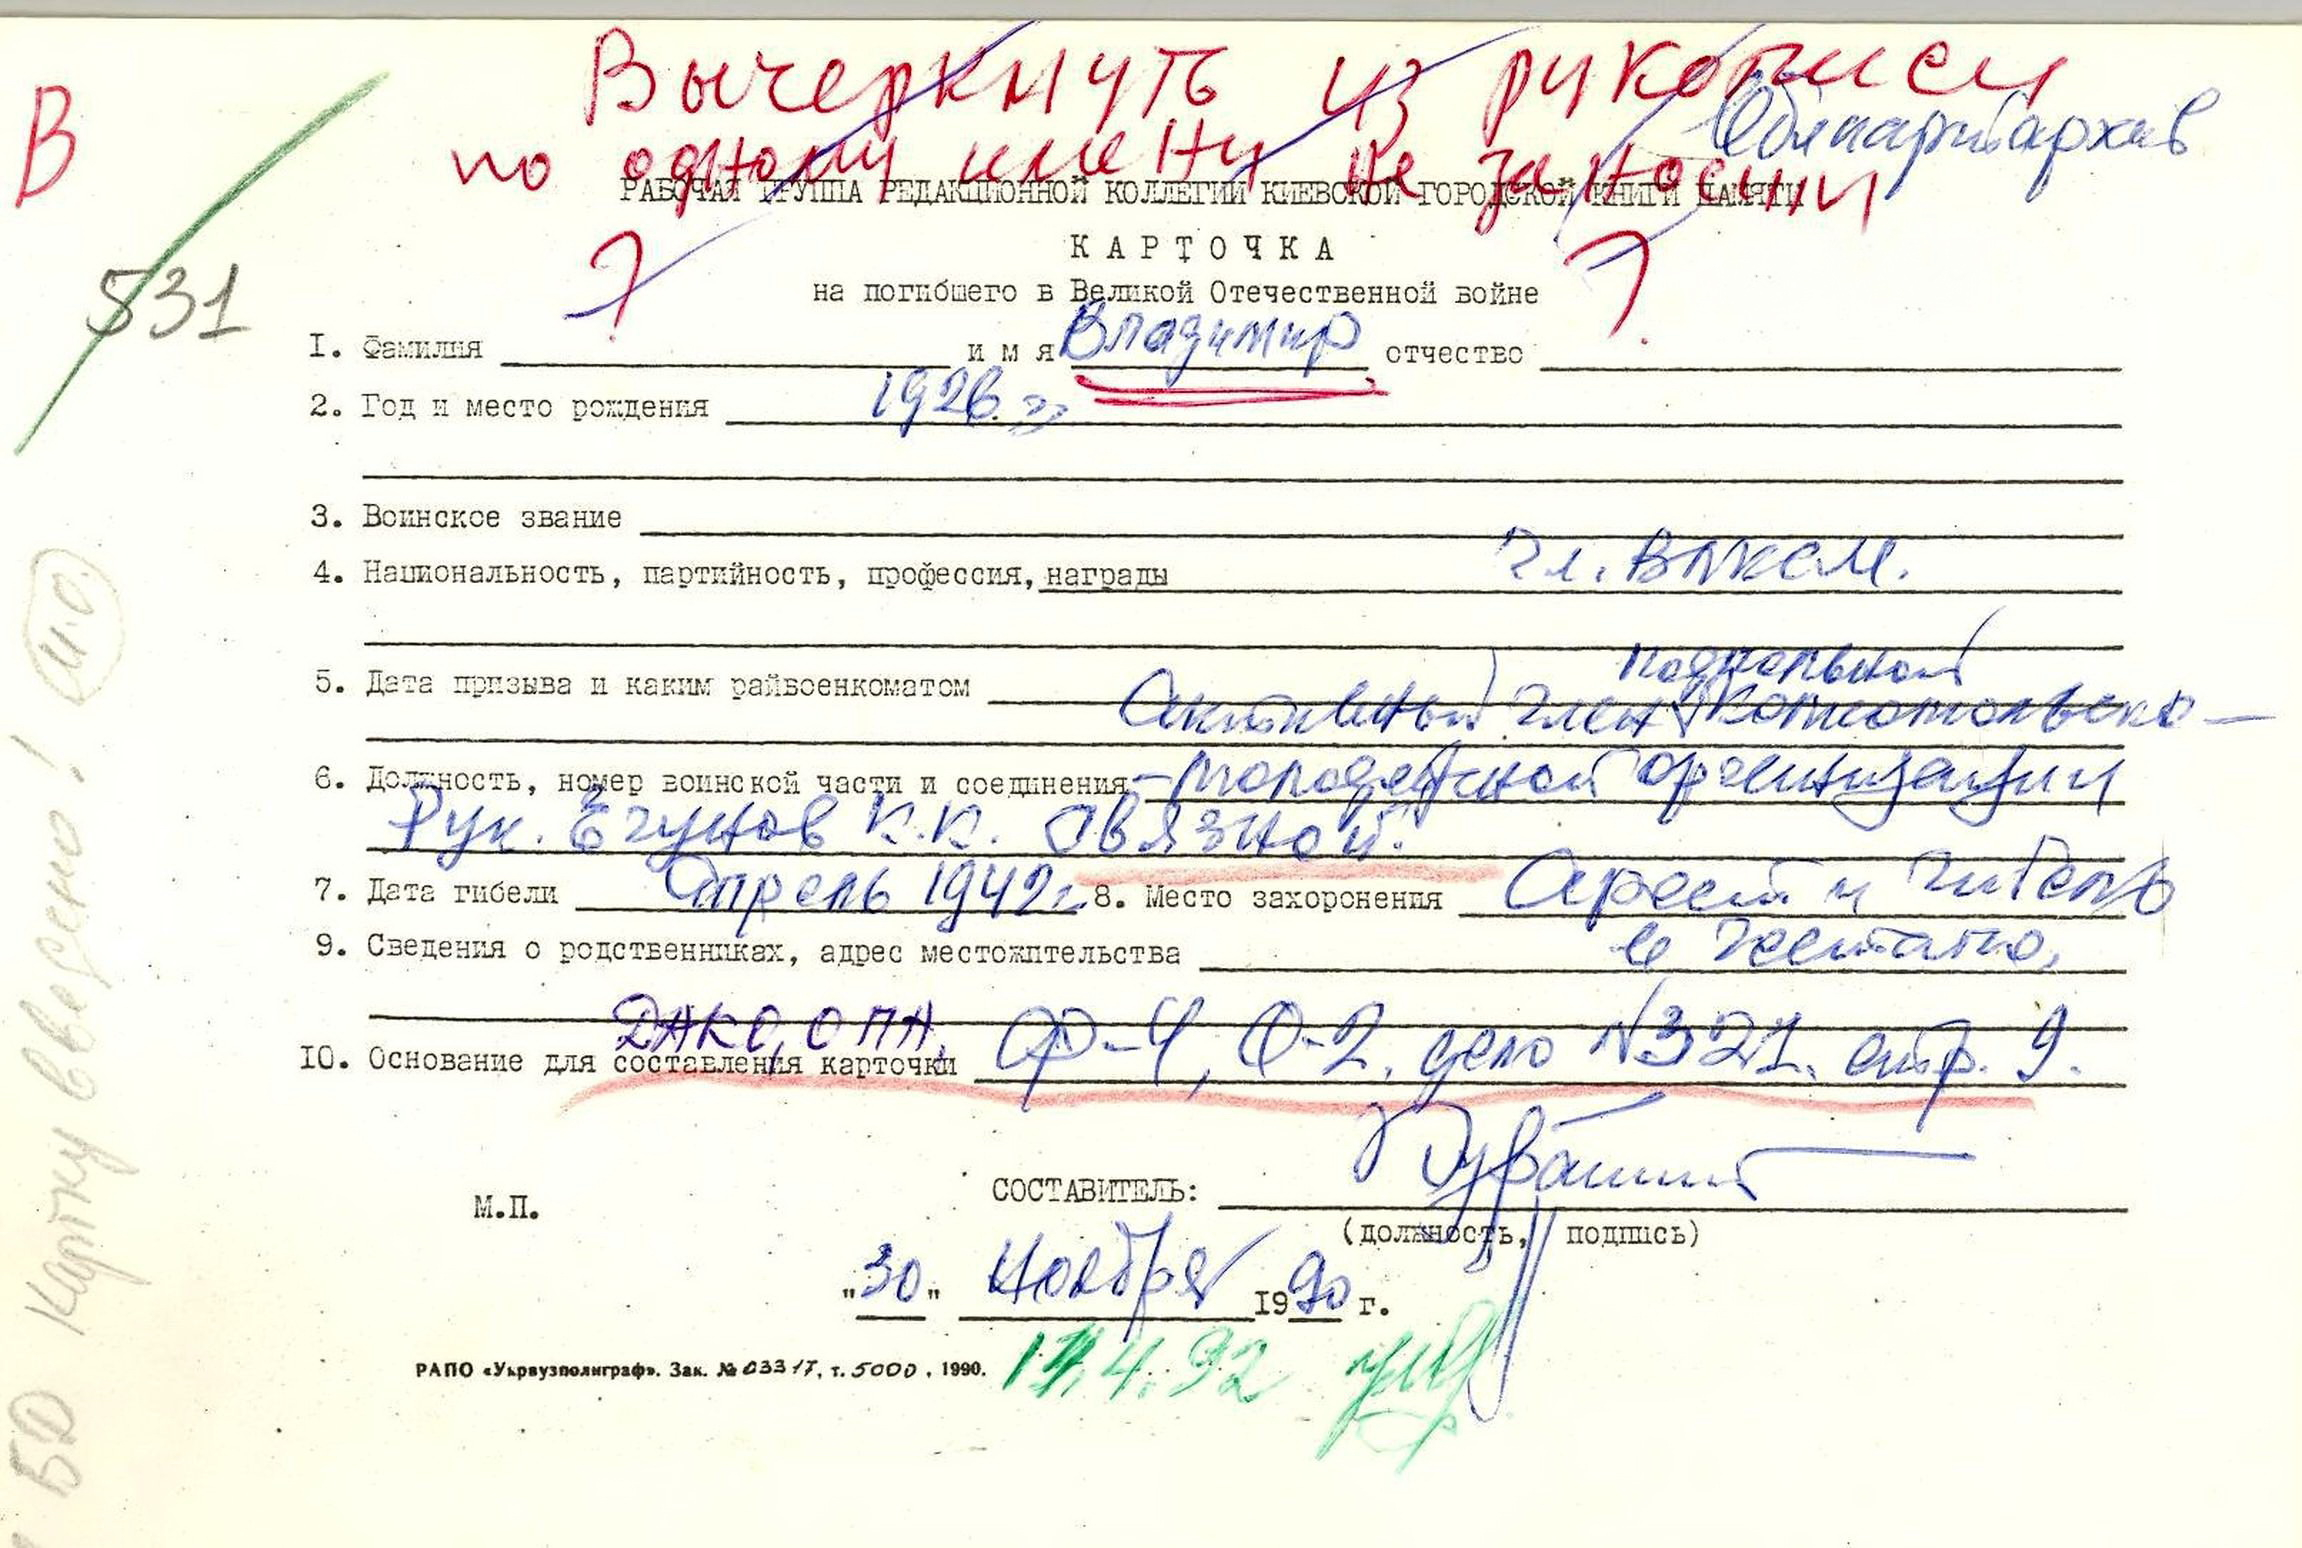 Вычеркнуть из рукописи
В
Облпартархив
по одному имени не заносим
РАБОЧАЯ ГРУППА РЕДАКЦИОННОЙ КОЛЛЕГИИ КИЕВСКОЙ ГОРОДСКОЙ КНИГИ ПАМЯТИ
? ?
531
КАРТОЧКА
на погибшего в Великой Отечественной войне
I. Фамилия имя Владимир отчество
2. Год и место рождения 1926 г.
3. Воинское звание
4. Национальность, партийность, профессия, награды чл. ВЛКСМ.
подпольной
5. Дата призыва и каким райвоенкоматом Активный член комсомольско-
6. Должность, номер воинской части и соединения -молодежной организации
Рук. Ечунов К.К. Связной.
7. Дата гибели Апрель 1942г. 8. Место захоронения Арест и гибель
9. Сведения о родственниках, адрес местожительства в гестапо.
ДАКО, ОПА,
10. Основание для составления карточки Ф-4, О-2, дело №321. стр. 9.
М.П.
СОСТАВИТЕЛЬ:
(должность, подпись)
"30" Ноября 1990 г.
РАПО «Укрвузполиграф». Зак. № 03317, т. 5000, 1990.
17.4.92
БД Картку введено! И.О.